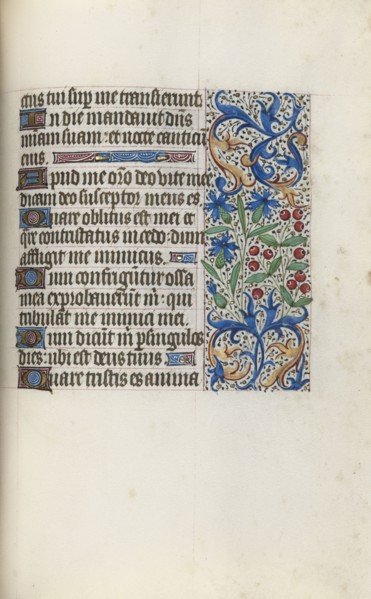 ctus tui sup me transierunt
In die mandauit dns
miam suam: et nocte canticu
eius.
Apud me oro deo vite mee
dicam deo susceptor meus es
Quare oblitus es mei et
qre contristatus incedo: dum
affligit me inimicus.
Dum confrigutur ossa
mea exprobauerut m: qui
tribulat me inimici mei.
Dum dicut m p singulos
dies: ubi est deus tuus
Quare tristis es anima